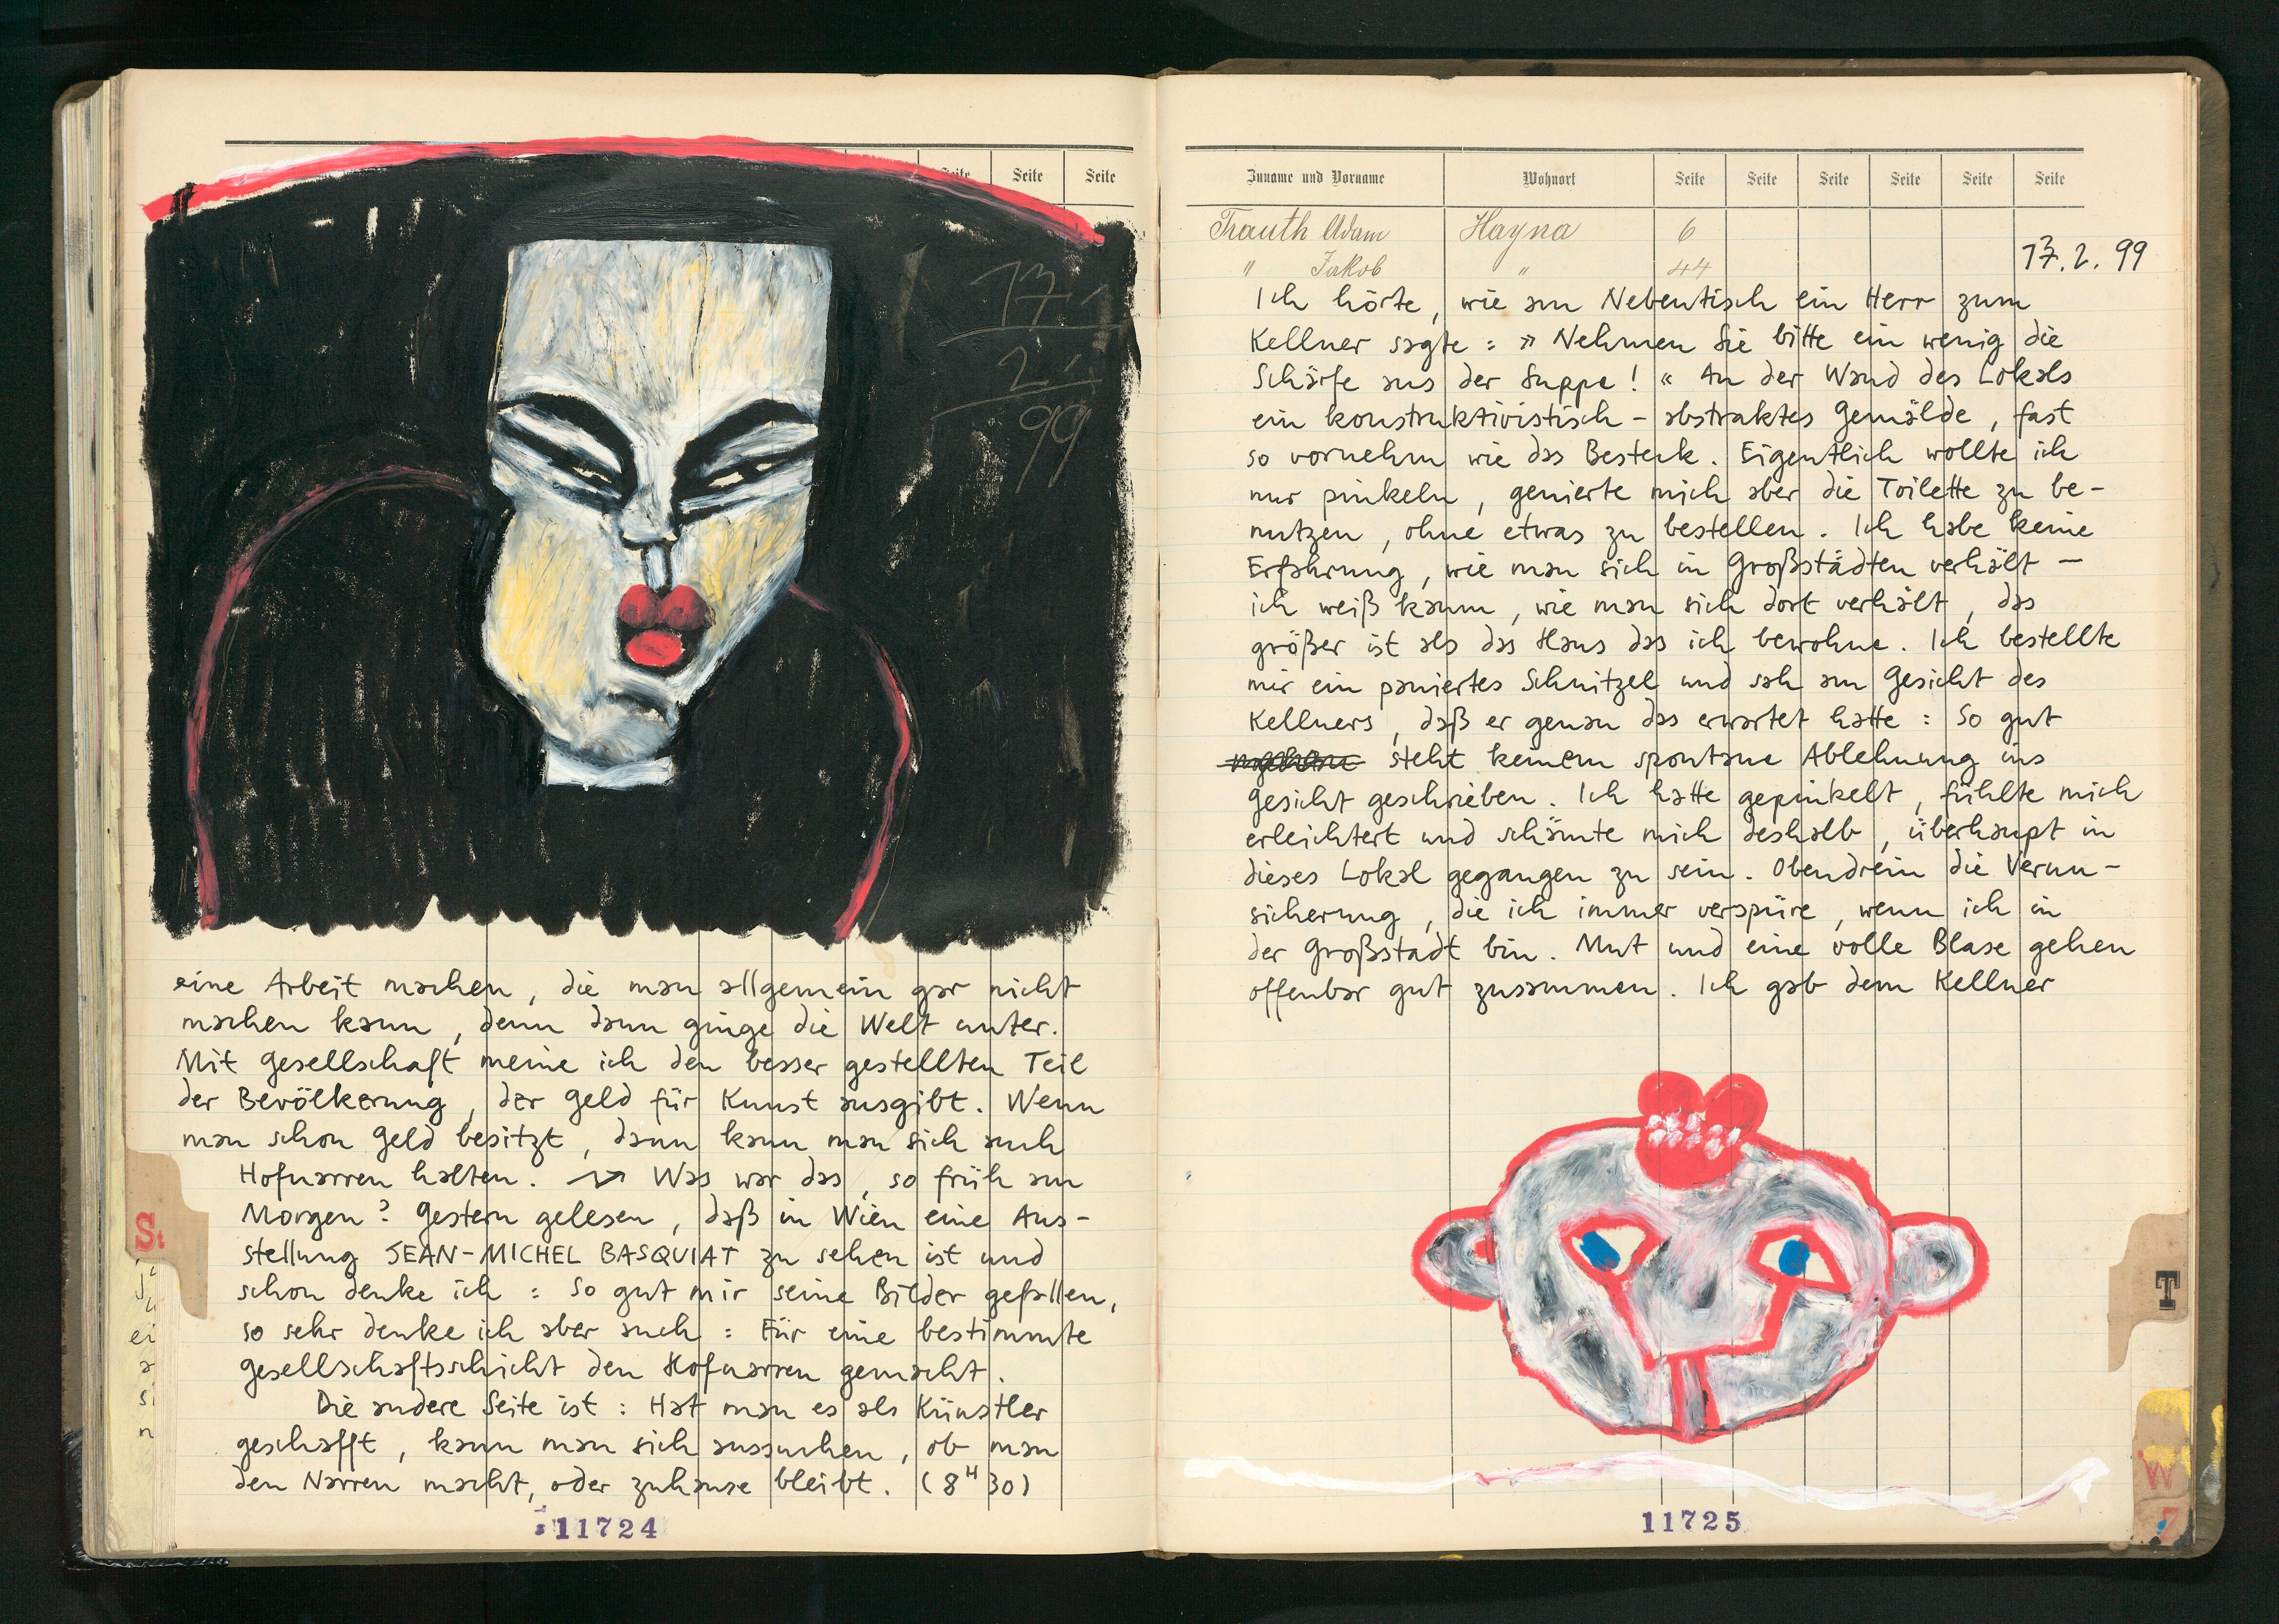 Seite Seite Seite
17.
2.
99
eine Arbeit machen, die man allgemein gar nicht
machen kann, denn dann ginge die Welt unter.
Mit Gesellschaft meine ich den besser gestellten Teil
der Bevölkerung, der Geld für Kunst ausgibt. Wenn
man schon Geld besitzt, dann kann man sich auch
Hofnarren halten. Was war das, so früh am
Morgen? Gestern gelesen, daß in Wien eine Aus-
stellung JEAN-MICHEL BASQUIAT zu sehen ist und
schon denke ich: So gut mir seine Bilder gefallen,
so sehr denke ich aber auch: Für eine bestimmte
Gesellschaftsschicht den Hofnarren gemacht.
Die andere Seite ist: Hat man es als Künstler
geschafft, kann man sich aussuchen, ob man
den Narren macht, oder zuhause bleibt. (8H30)
11724
Zuname und Vorname Wohnort Seite Seite Seite Seite Seite Seite
Trauth Adam Hayna 6
" Jakob " 44
17.2.99
Ich hörte, wie am Nebentisch ein Herr zum
Kellner sagte: »Nehmen Sie bitte ein wenig die
Schärfe aus der Suppe!« An der Wand des Lokals
ein konstruktivistisch-abstraktes Gemälde, fast
so vornehm wie das Besteck. Eigentlich wollte ich
nur pinkeln, genierte mich aber die Toilette zu be-
nutzen, ohne etwas zu bestellen. Ich habe keine
Erfahrung, wie man sich in Großstädten verhält –
ich weiß kaum, wie man sich dort verhält, das
größer ist als das Haus das ich bewohne. Ich bestellte
mir ein paniertes Schnitzel und sah am Gesicht des
Kellners, daß er genau das erwartet hatte: So gut
steht keinem spontane Ablehnung ins
Gesicht geschrieben. Ich hatte gepinkelt, fühlte mich
erleichtert und schämte mich deshalb, überhaupt in
dieses Lokal gegangen zu sein. Obendrein die Verun-
sicherung, die ich immer verspüre, wenn ich in
der Großstadt bin. Mut und eine volle Blase gehen
offenbar gut zusammen. Ich gab dem Kellner
T
W
11725